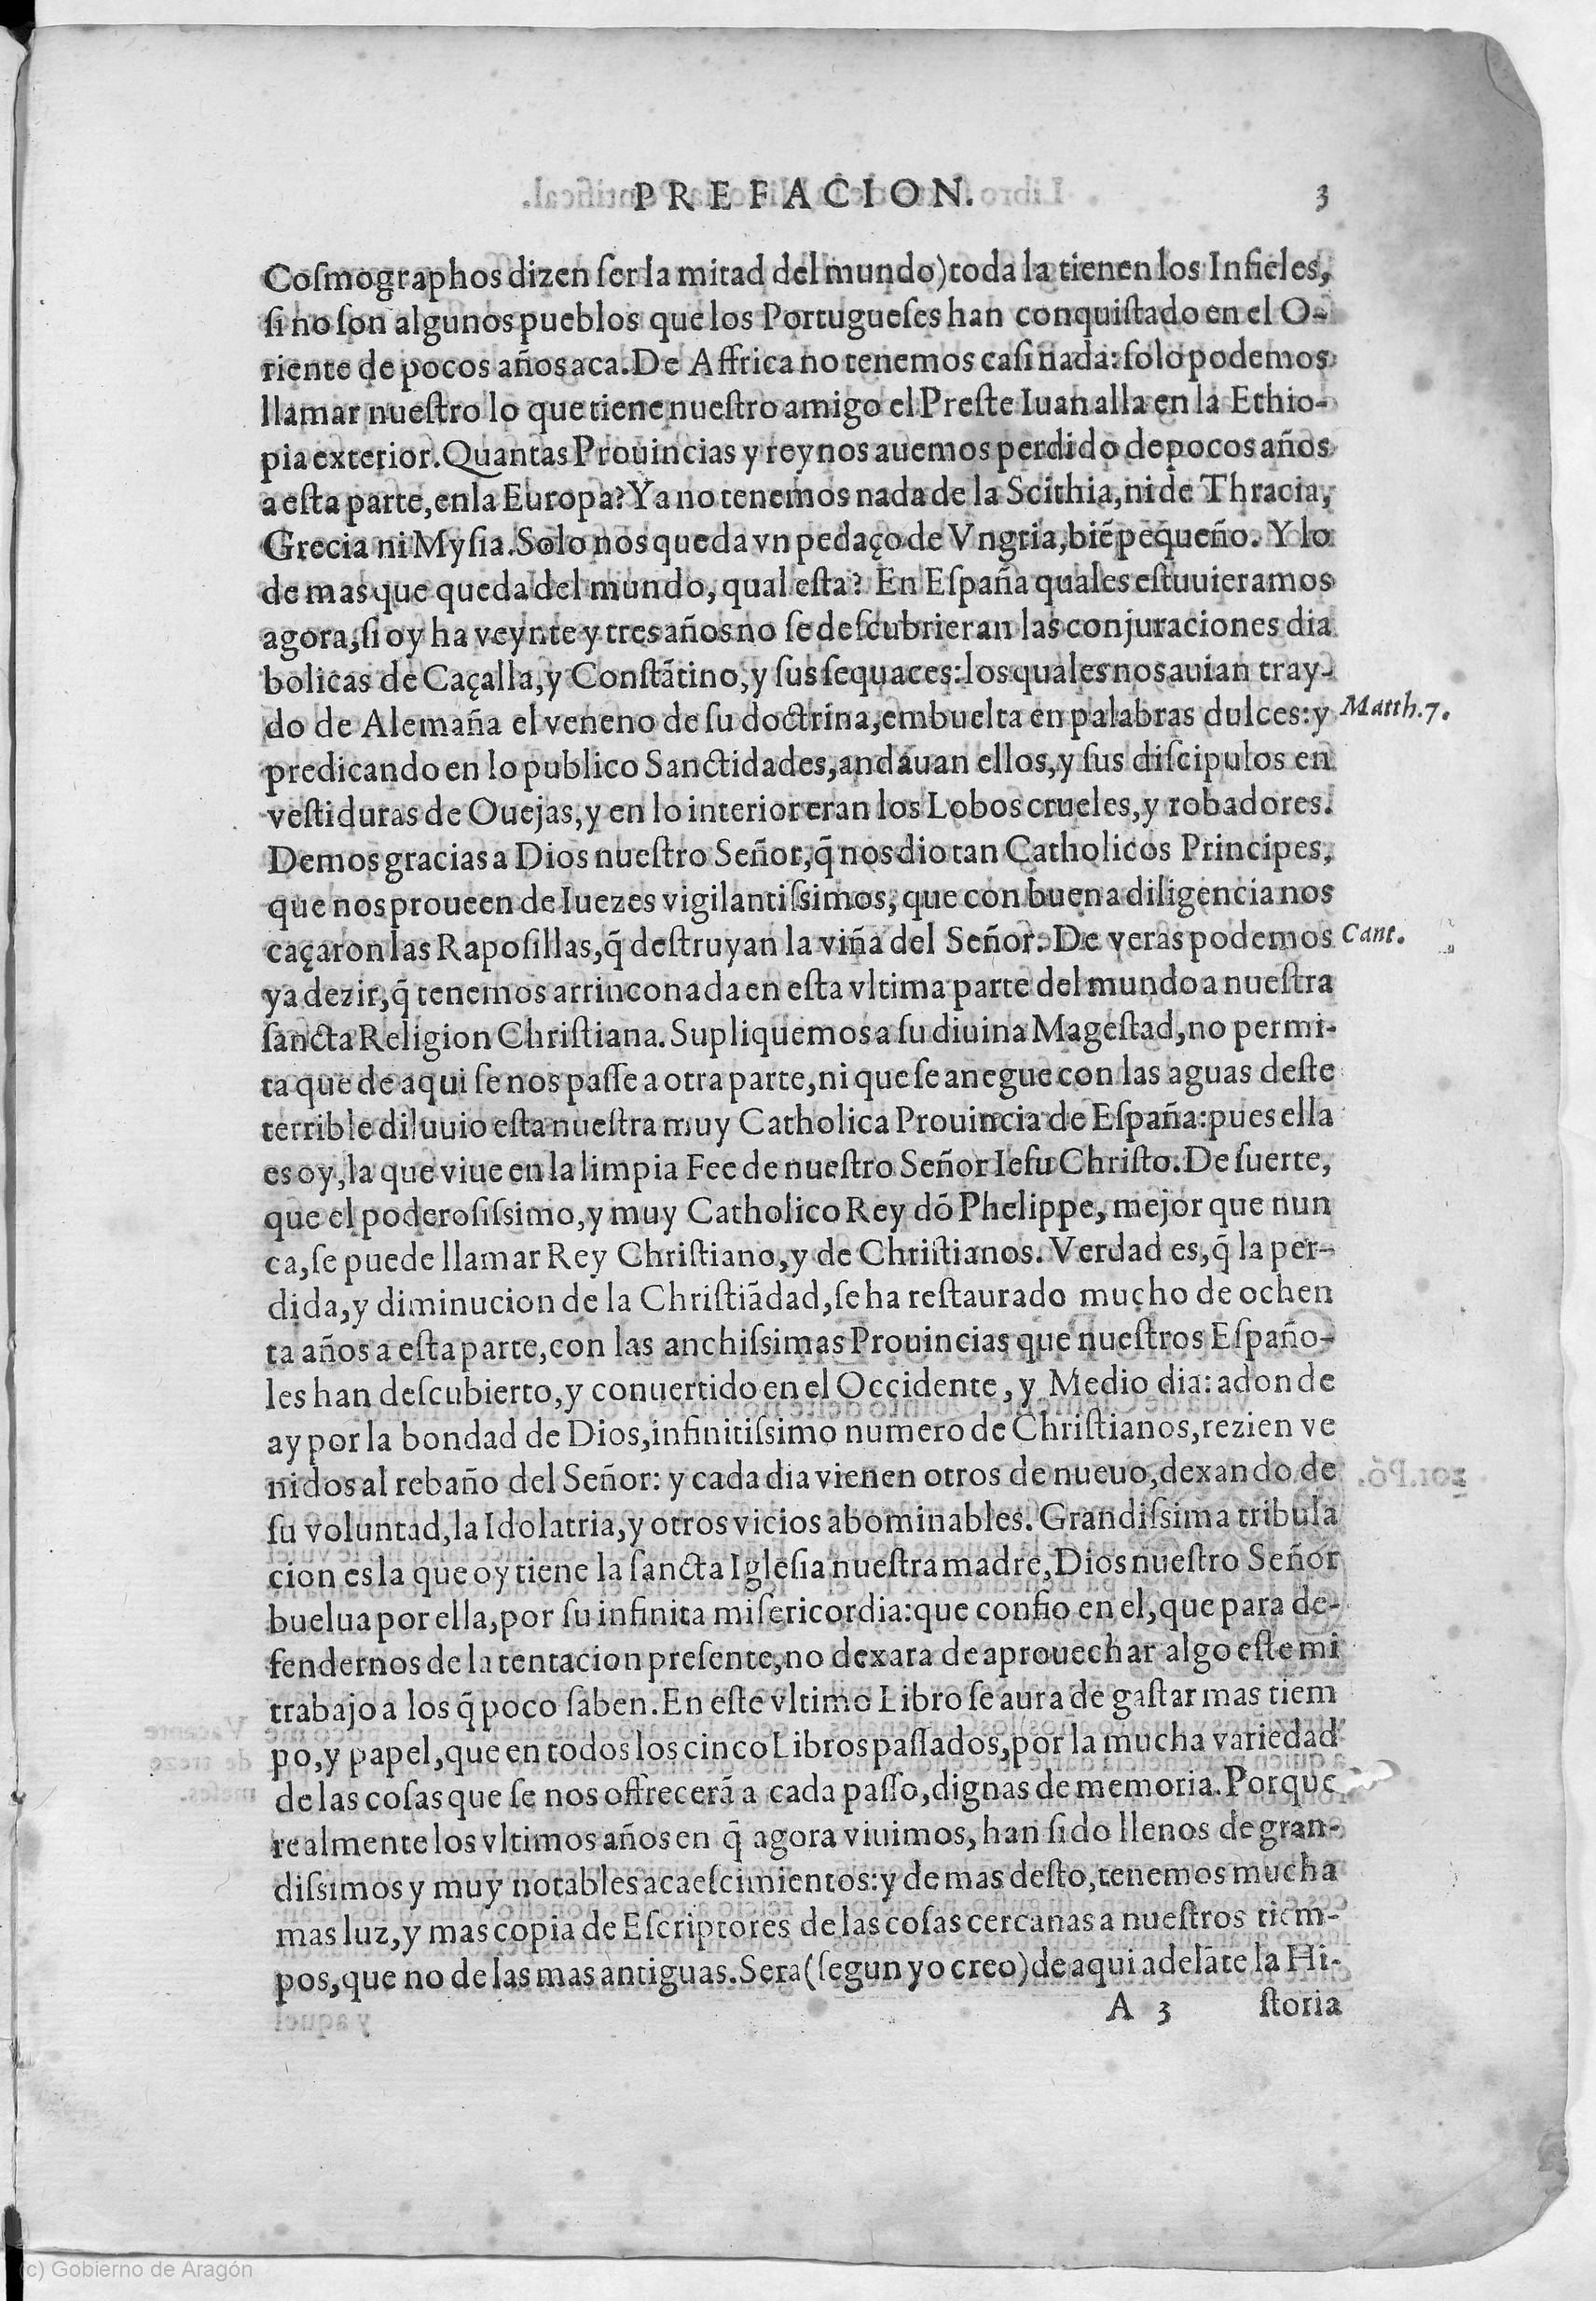 PREFACION. 3
Coſmographos dizen ſer la mitad del mundo) toda la tienen los Infieles,
ſi no ſon algunos pueblos que los Portugueſes han conquiſtado en el O-
riente de pocos años aca. De Affrica no tenemos caſi nada: ſolo podemos
llamar nueſtro lo que tiene nueſtro amigo el Preſte Iuan alla en la Ethio-
pia exterior. Quantas Prouincias y reynos auemos perdido de pocos años
a eſta parte, en la Europa? Ya no tenemos nada de la Scithia, ni de Thracia,
Grecia ni Myſia. Solo nos queda vn pedaço de Vngria, biẽ pequeño. Y lo
de mas que queda del mundo, qual eſta? En Eſpaña quales eſtuuieramos
agora, ſi oy ha veynte y tres años no ſe deſcubrieran las conjuraciones dia
bolicas de Caçalla, y Conſtãtino, y ſus ſequaces: los quales nos auian tray-
do de Alemaña el veneno de ſu doctrina, embuelta en palabras dulces: y Matth.7.
predicando en lo publico Sanctidades, andauan ellos, y ſus diſcipulos en
veſtiduras de Ouejas, y en lo interior eran los Lobos crueles, y robadores.
Demos gracias a Dios nueſtro Señor, q̃ nos dio tan Catholicos Principes,
que nos proueen de Iuezes vigilantiſsimos, que con buena diligencia nos
caçaron las Rapoſillas, q̃ deſtruyan la viña del Señor. De veras podemos Cant.
ya dezir, q̃ tenemos arrinconada en eſta vltima parte del mundo a nueſtra
ſancta Religion Chriſtiana. Supliquemos a ſu diuina Mageſtad, no permi-
ta que de aqui ſe nos paſſe a otra parte, ni que ſe anegue con las aguas deſte
terrible diluuio eſta nueſtra muy Catholica Prouincia de Eſpaña: pues ella
es oy, la que viue en la limpia Fee de nueſtro Señor Ieſu Chriſto. De ſuerte,
que el poderoſiſsimo, y muy Catholico Rey dõ Phelippe, mejor que nun
ca, ſe puede llamar Rey Chriſtiano, y de Chriſtianos. Verdad es, q̃ la per-
dida, y diminucion de la Chriſtiãdad, ſe ha reſtaurado mucho de ochen
ta años a eſta parte, con las anchiſsimas Prouincias que nueſtros Eſpaño-
les han deſcubierto, y conuertido en el Occidente, y Medio dia: adonde
ay por la bondad de Dios, infinitiſsimo numero de Chriſtianos, rezien ve
nidos al rebaño del Señor: y cada dia vienen otros de nueuo, dexando de
ſu voluntad, la Idolatria, y otros vicios abominables. Grandiſsima tribula
cion es la que oy tiene la ſancta Igleſia nueſtra madre, Dios nueſtro Señor
buelua por ella, por ſu infinita miſericordia: que confio en el, que para de-
fendernos de la tentacion preſente, no dexara de aprouechar algo eſte mi
trabajo a los q̃ poco ſaben. En eſte vltimo Libro ſe aura de gaſtar mas tiem
po, y papel, que en todos los cinco Libros paſſados, por la mucha variedad
de las coſas que ſe nos offrecerã a cada paſſo, dignas de memoria. Porque
realmente los vltimos años en q̃ agora viuimos, han ſido llenos de gran-
diſsimos y muy notables acaeſcimientos: y de mas deſto, tenemos mucha
mas luz, y mas copia de Eſcriptores de las coſas cercanas a nueſtros tiem-
pos, que no de las mas antiguas. Sera (ſegun yo creo) de aqui adelãte la Hi-
A 3 ſtoria
(c) Gobierno de Aragón